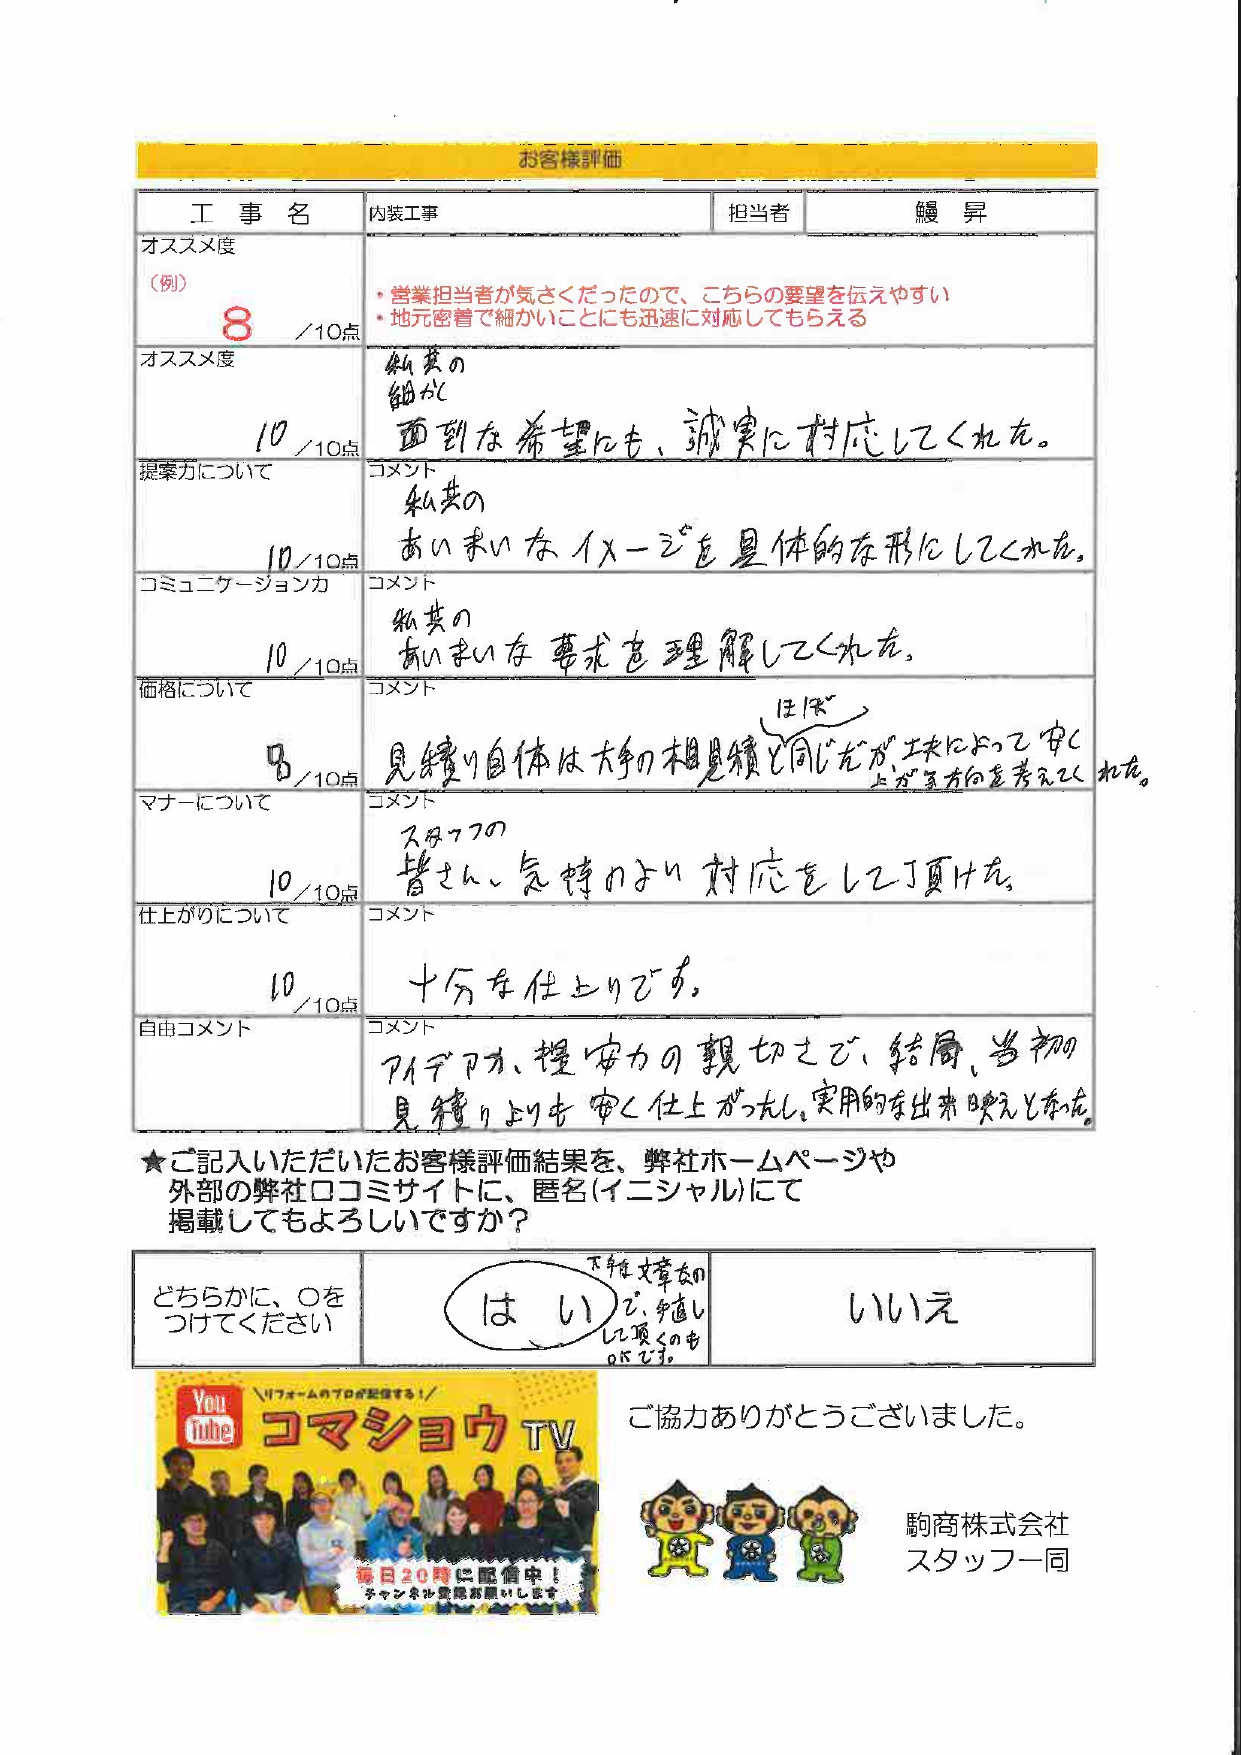 お客様評価
工 事 名 内装工事 担当者 鰻 昇
オススメ度
（例）
8 ／10点
・営業担当者が気さくだったので、こちらの要望を伝えやすい
・地元密着で細かいことにも迅速に対応してもらえる
オススメ度
10 ／10点
私共の
細かく
面到な希望にも、誠実に対応してくれた。
提案力について
10／10点
コメント
私共の
あいまいなイメージを具体的な形にしてくれた。
コミュニケーション力
10／10点
コメント
私共の
あいまいな要求を理解してくれた。
価格について
8／10点
コメント
ほぼ
見積り自体は大手の相見積と同じだが、工夫によって安く
上がる方向を考えてくれた。
マナーについて
10／10点
コメント
スタッフの
皆さん、気持のよい対応をして頂けた。
仕上がりについて
10／10点
コメント
十分な仕上りです。
自由コメント
コメント
アイデア力、提案力の親切さで、結局、当初の
見積りよりも安く仕上がったし、実用的な出来映えとなった。
★ご記入いただいたお客様評価結果を、弊社ホームページや
外部の弊社口コミサイトに、匿名(イニシャル)にて
掲載してもよろしいですか？
どちらかに、〇を
つけてください
は い
下手な文章なの
で、手直し
して頂くのも
OKです。
いいえ
You
Tube
＼リフォームのプロが配信する！／
コマショウTV
毎日20時に配信中！
チャンネル登録お願いします
ご協力ありがとうございました。
駒商株式会社
スタッフ一同